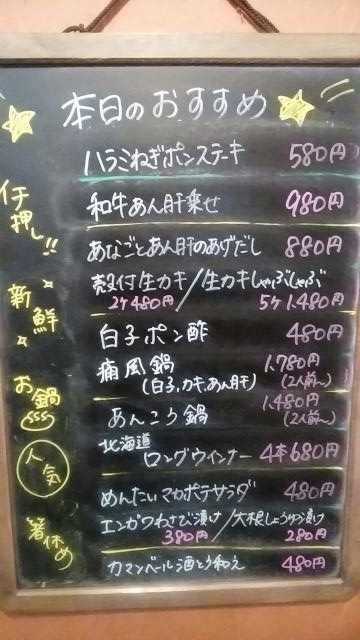 本日のおすすめ
ハラミねぎポンステーキ 580円
イチ押し!!
和牛あん肝乗せ 980円
あなごとあん肝のあげだし 880円
殻付生カキ/生カキしゃぶしゃぶ
2ケ480円 5ケ1.480円
新鮮
白子ポン酢 480円
痛風鍋 1.780円
(白子,カキ,あん肝) (2人前〜)
お鍋
あんこう鍋 1.480円
(2人前〜)
人気
北海道
ロングウインナー 4本680円
めんたいマカポテサラダ 480円
箸休め
エンガワわさび漬け/大根しょうゆ漬け
380円 280円
カマンベール酒とう和え 480円